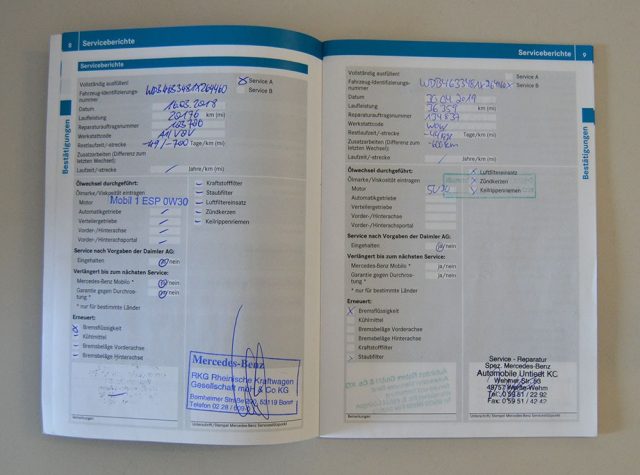 8 Serviceberichte
Serviceberichte
Bestätigungen
Vollständig ausfüllen!
Service A
Service B
Fahrzeug-Identifizierungs-
nummer
Datum
16.03.2018
Laufleistung
20176 km (mi)
Reparaturauftragsnummer
Werkstattcode
Restlaufzeit/-strecke
-49/-700 Tage/km (mi)
Zusatzarbeiten (Differenz zum
letzten Wechsel):
Laufzeit/-strecke
Jahre/km (mi)
Ölwechsel durchgeführt:
Ölmarke/Viskosität eintragen
Motor Mobil 1 ESP 0W30
Automatikgetriebe
Verteilergetriebe
Vorder-/Hinterachse
Vorder-/Hinterachsportal
Kraftstofffilter
Staubfilter
Luftfiltereinsatz
Zündkerzen
Keilrippenriemen
Service nach Vorgaben der Daimler AG:
Eingehalten ja/nein
Verlängert bis zum nächsten Service:
Mercedes-Benz Mobilo * ja/nein
Garantie gegen Durchros-
tung * ja/nein
* nur für bestimmte Länder
Erneuert:
Bremsflüssigkeit
Kühlmittel
Bremsbeläge Vorderachse
Bremsbeläge Hinterachse
Mercedes-Benz
RKG Rheinische Kraftwagen
Gesellschaft mbH & Co KG
Bornheimer Straße 200, 53119 Bonn
Telefon 02 28 / 609-0
Bemerkungen
Unterschrift/Stempel Mercedes-Benz Servicestützpunkt
Serviceberichte 9
Bestätigungen
Vollständig ausfüllen!
Service A
Service B
Fahrzeug-Identifizierungs-
nummer
Datum
30.04.2019
Laufleistung
36 359 km (mi)
Reparaturauftragsnummer
134837
Werkstattcode
Restlaufzeit/-strecke
Tage/km (mi)
Zusatzarbeiten (Differenz zum
letzten Wechsel):
Laufzeit/-strecke
Jahre/km (mi)
Ölwechsel durchgeführt:
Ölmarke/Viskosität eintragen
Motor 5W30
Automatikgetriebe
Verteilergetriebe
Vorder-/Hinterachse
Vorder-/Hinterachsportal
Luftfiltereinsatz
Zündkerzen
Keilrippenriemen
Service nach Vorgaben der Daimler AG:
Eingehalten ja/nein
Verlängert bis zum nächsten Service:
Mercedes-Benz Mobilo * ja/nein
Garantie gegen Durchros-
tung * ja/nein
* nur für bestimmte Länder
Erneuert:
Bremsflüssigkeit
Kühlmittel
Bremsbeläge Vorderachse
Bremsbeläge Hinterachse
Kraftstofffilter
Staubfilter
Service - Reparatur
Spez. Mercedes-Benz
Automobile Untiedt KG
Wehmer Str. 93
49757 Werlte-Wehm
Tel.: 0 59 51 / 22 92
Fax: 0 59 51 / 42 42
Bemerkungen
Unterschrift/Stempel Mercedes-Benz Servicestützpunkt